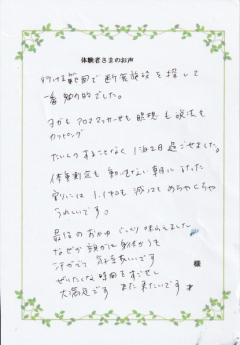 体験者さまのお声
行ける範囲で断食施設を探して
一番魅力的でした。
ヨガもアロママッサージも瞑想も
カッピング
たいくつすることなく1泊2日過ごせました。
体重測定も動いてない
割りには1.1キロも減ってめちゃくちゃ
うれしいです。
最後のおかゆじっくり味わえました
なぜか朝から身体からも
汗がでて
ぜいたくな時間をすごせて
大満足です また来たいです
様